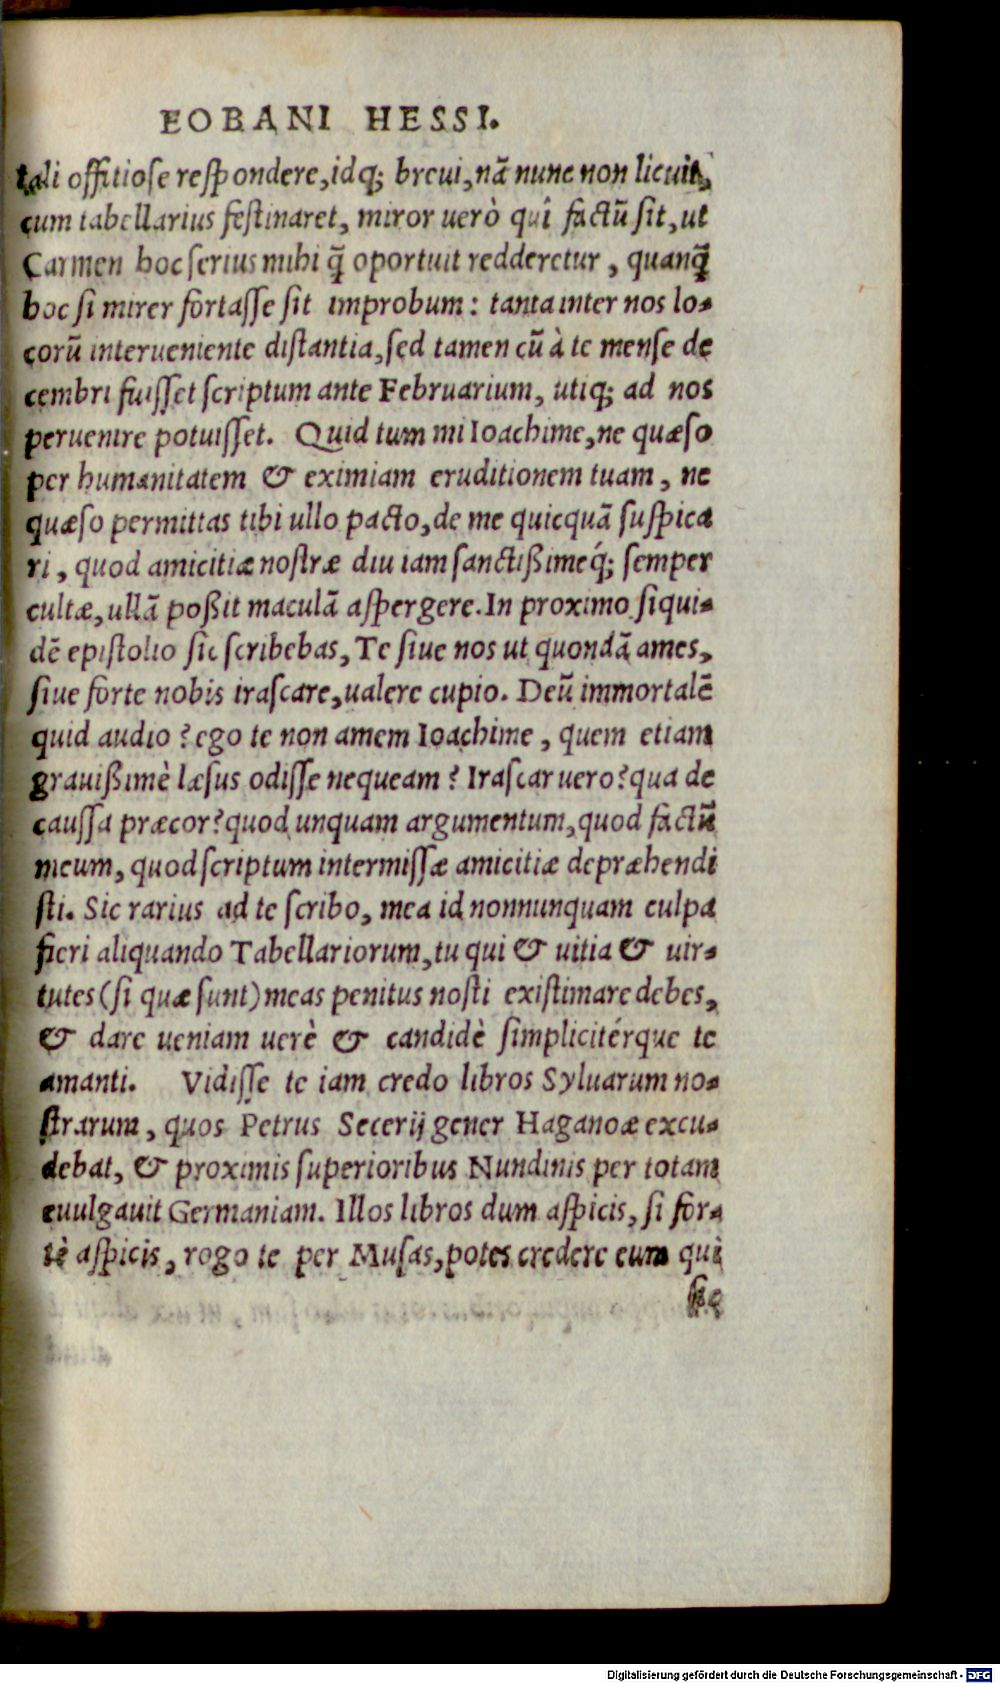 EOBANI HESSI.
tali offitiose respondere, idq; breui, nã nunc non licuit,
cum tabellarius festinaret, miror uerò quî factũ sit, ut
Carmen hoc serius mihi q̃ oportuit redderetur, quanq̃
hoc si mirer fortasse sit improbum: tanta inter nos lo-
corũ interueniente distantia, sed tamen cũ à te mense de
cembri fuisset scriptum ante Februarium, utiq; ad nos
peruenire potuisset. Quid tum mi Ioachime, ne quæso
per humanitatem & eximiam eruditionem tuam, ne
quæso permittas tibi ullo pacto, de me quicquã suspica
ri, quod amicitiæ nostræ diu iam sanctißimeq́; semper
cultæ, ullã poßit maculã aspergere. In proximo siqui-
dẽ epistolio sic scribebas, Te siue nos ut quondã ames,
siue forte nobis irascare, ualere cupio. Deũ immortalẽ
quid audio? ego te non amem Ioachime, quem etiam
grauißimè læsus odisse nequeam? Irascar uero? qua de
caussa præcor? quod unquam argumentum, quod factũ
meum, quod scriptum intermissæ amicitiæ depræhendi
sti. Sic rarius ad te scribo, mea id nonnunquam culpa
fieri aliquando Tabellariorum, tu qui & uitia & uir-
tutes (si quæ sunt) meas penitus nosti existimare debes,
& dare ueniam uerè & candidè simplicitérque te
amanti. Vidisse te iam credo libros Syluarum no-
strarum, quos Petrus Secerij gener Haganoæ excu-
debat, & proximis superioribus Nundinis per totam
euulgauit Germaniam. Illos libros dum aspicis, si for-
tè aspicis, rogo te per Musas, potes credere eum qui
Digitalisierung gefördert durch die Deutsche Forschungsgemeinschaft - DFG